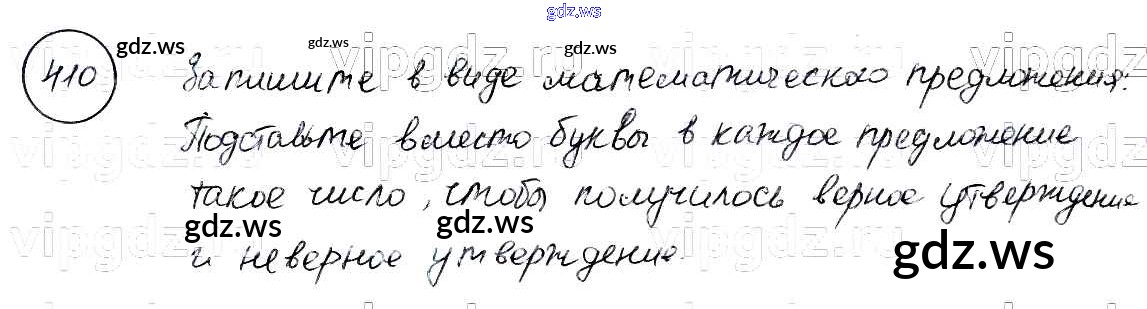 gdz.ws
410 Запишите в виде математического предложения:
Подставьте вместо буквы в каждое предложение
такое число, чтобы получилось верное утверждение
и неверное утверждение.
gdz.ws
gdz.ws
gdz.ws
gdz.ws
gdz.ws
gdz.ws
vipgdz.ru
vipgdz.ru
vipgdz.ru
vipgdz.ru